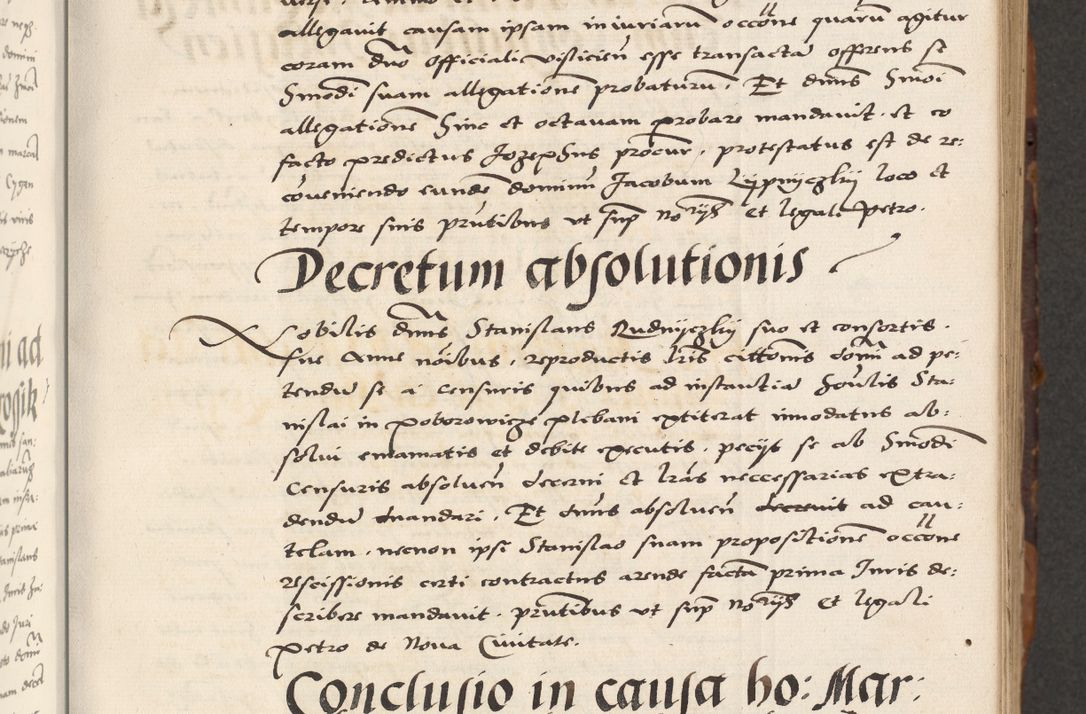 allegavit causam ipsam iniuriarũ occõne quarũ agitur
coram dño officiali visliciẽn esse transactã offerens se
Hmodi suam allegationẽ probaturũ. Et dnus Hmoi
allegationẽ Hinc et octavam probare mandavit. et eo
facto predictus Jozephus procur. protestatus est de re:
cõveniendo eundẽ dominũ Jacobum Lypnyczkij loco et
tempore suis prñtibus ut sup norijs et legali Petro.
Decretum absolutionis
Nobilis dnus Stanislaus Rudnyczkij suo et consortis
sue Anne nõibus, reproductis lris cittõnis domũ ad pe:
tendũ se a censuris quibus ad instantiã honlis Sta:
nislai in poborowicze plebani extiterat innodatus ab:
solvi emanatis et debite executis. pecijt se ab Hmodi
Censuris absolvẽn decerni et lrãs neccessarias extra:
dendũ mandari. Et dnus absolvẽn decrevit ad cau:
telam. necnon ipsi Stanislao suam propositionẽ occõne
rescissionis certi contractus arende factã prima Iuris de:
scribere mandavit. prñtibus ut sup norijs et legali
Petro de Nova Civitate.
Conclusio in causa ho: Mar: